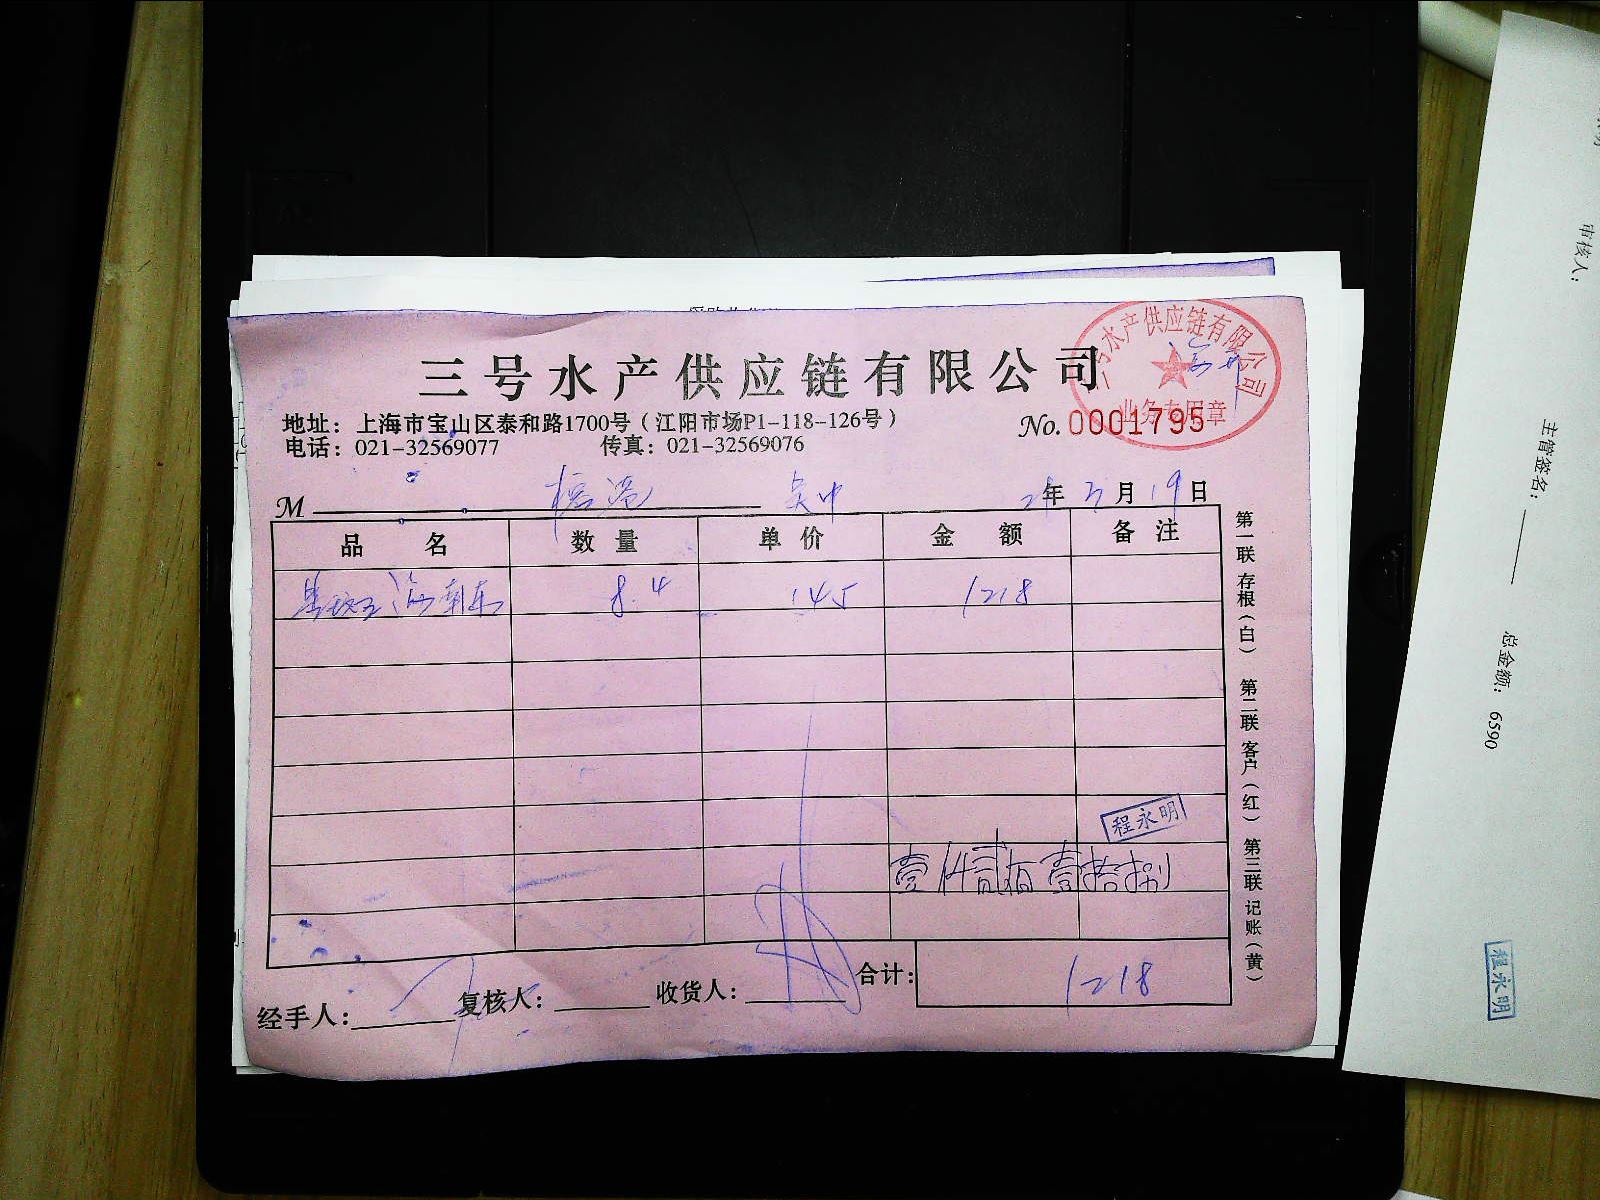 三号水产供应链有限公司
三号水产供应链有限公司
业务专用章
地址：上海市宝山区泰和路1700号（江阳市场P1-118-126号）
No. 0001795
电话：021-32569077 传真：021-32569076
M 年 月 19 日
品名 数量 单价 金额 备注
8.4 145 1218
程永明
壹仟贰佰壹拾捌
合计： 1218
经手人： 复核人： 收货人：
第一联 存根（白） 第二联 客户（红） 第三联 记账（黄）
审核人：
主管签名：
总金额： 6590
程永明